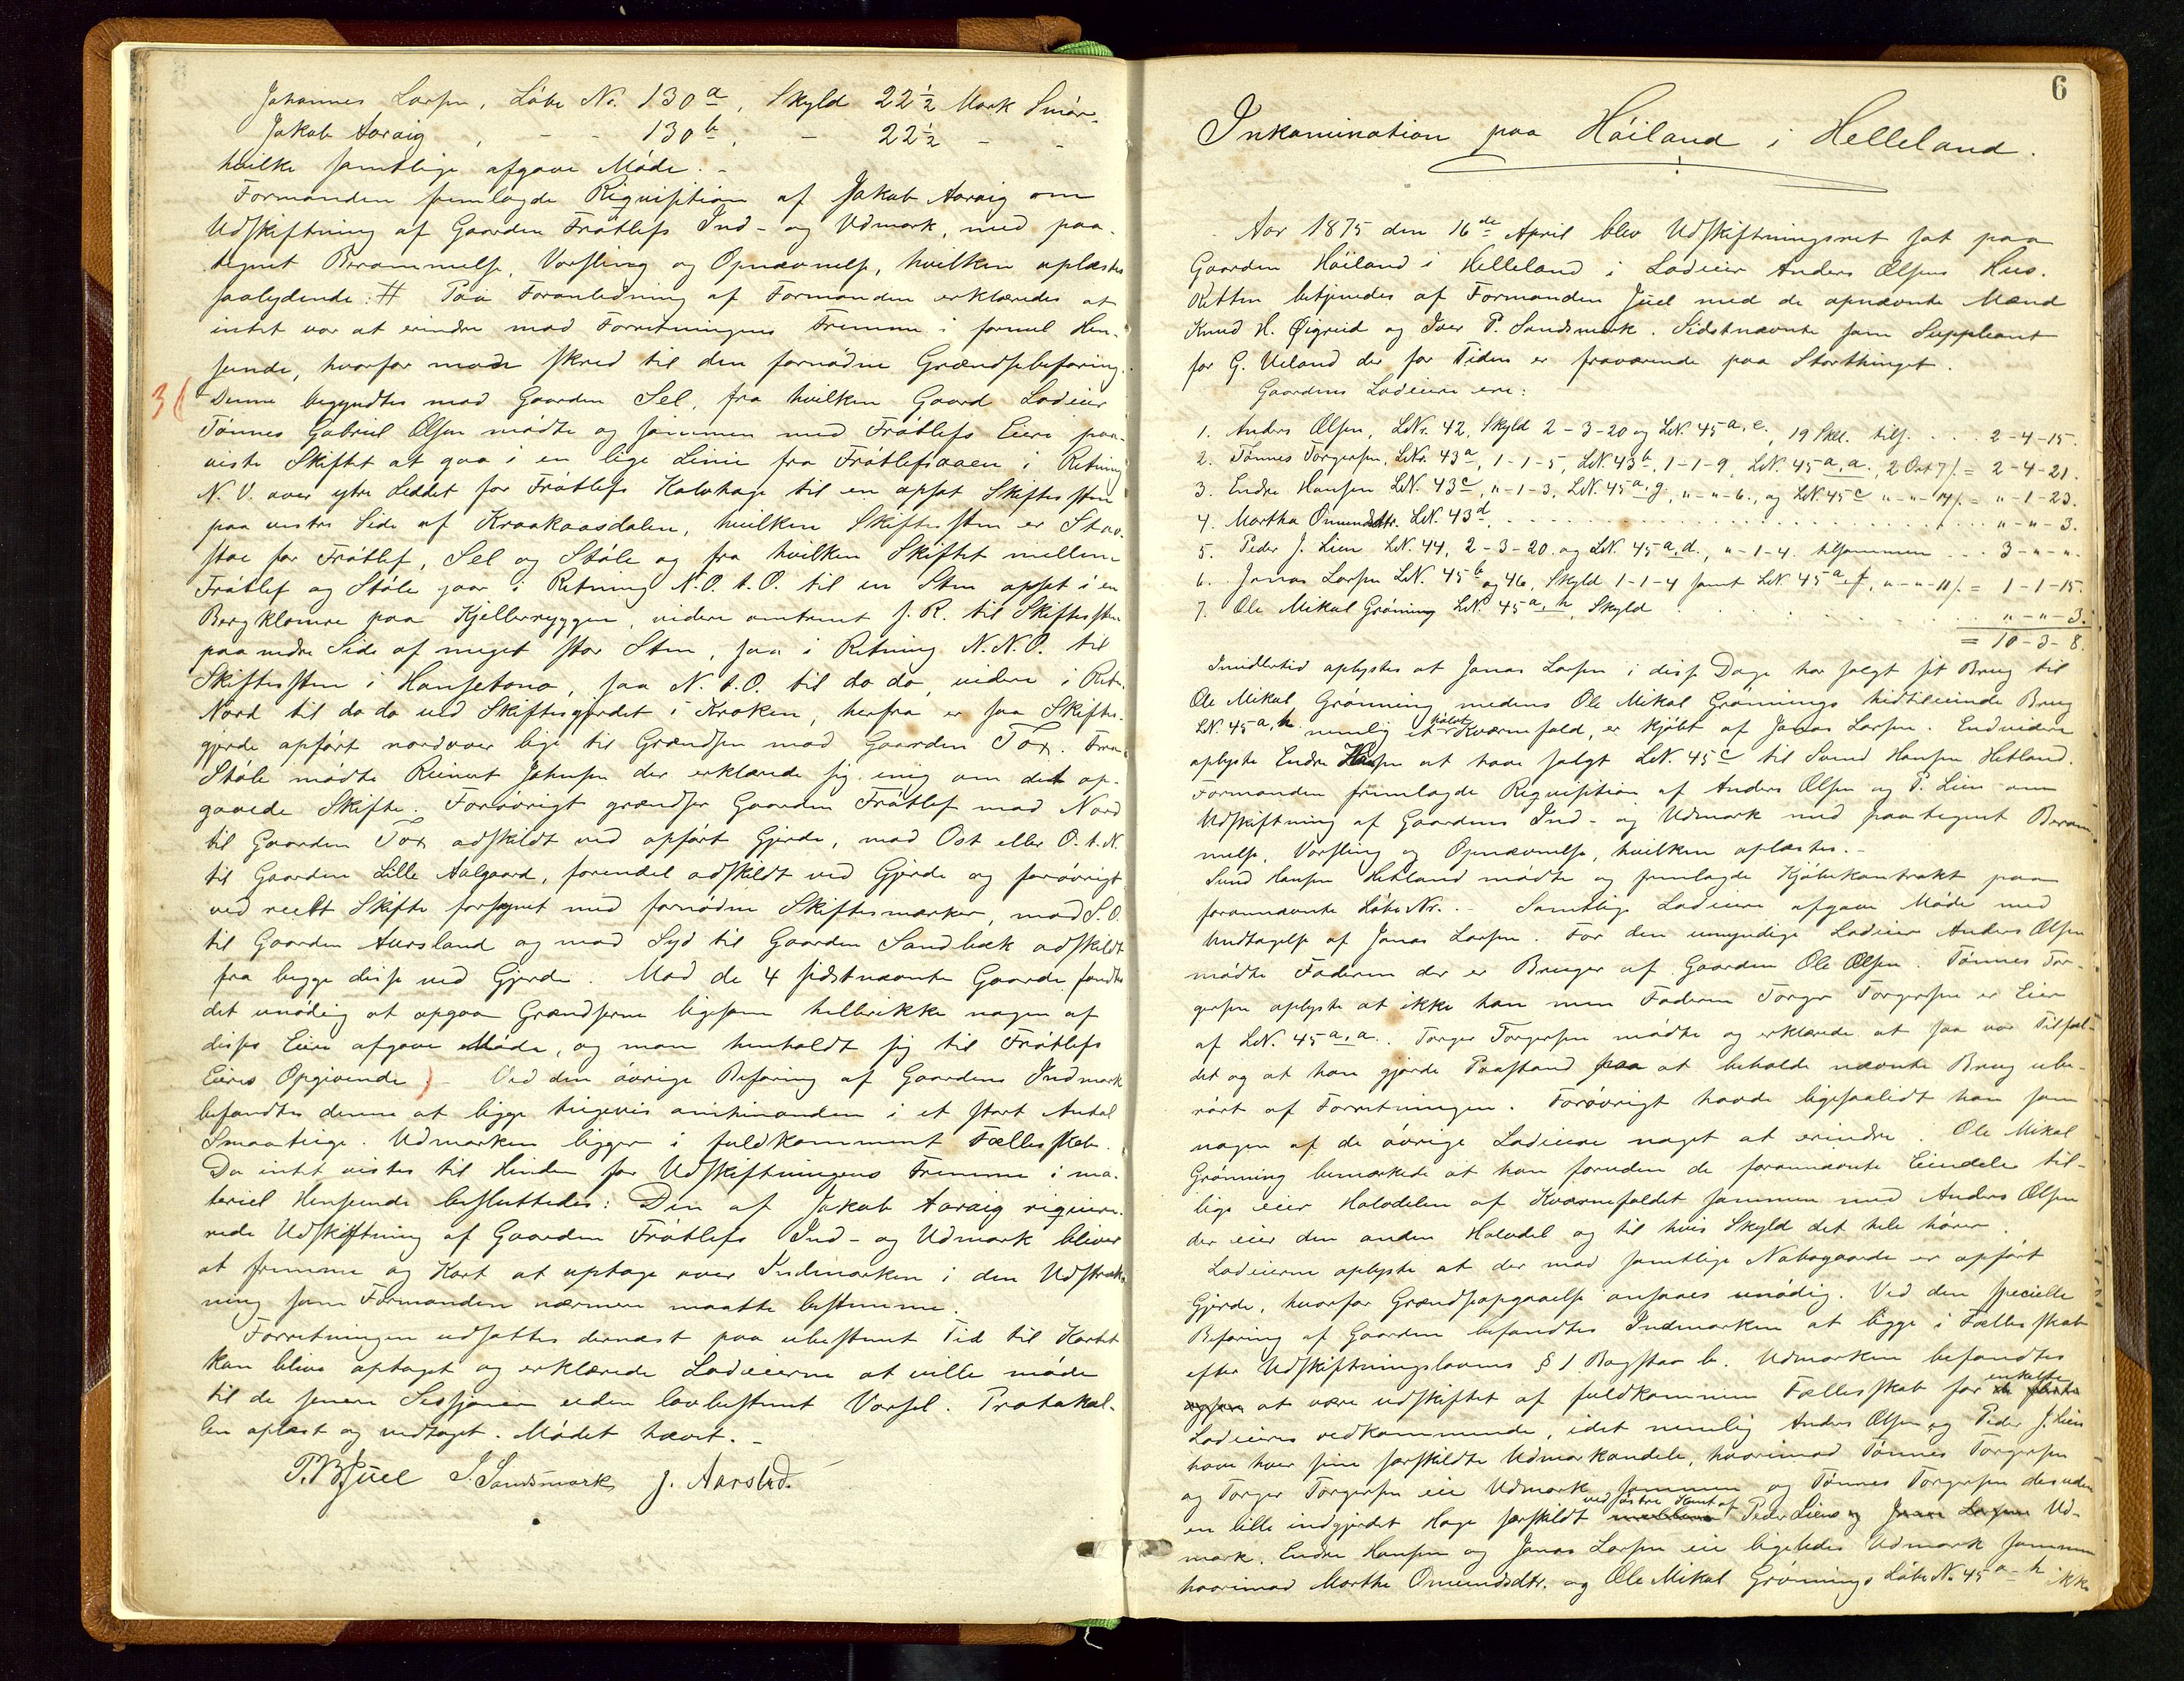 Johannes Larsen, Løbe No. 130a, Skyld 22½ Mark Smør.
Jakob Aaraig, - - 130b, - 22½ - -
hvilke samtlige afgave Møde. -
Formanden fremlagde Reqvisition af Jakob Aaraig om
Udskiftning af Gaarden Frøtlefs Ind- og Udmark, med paa-
tegnet Berammelse, Varsling og Opnævnelse, hvilken oplæstes
saalydende: # Paa Foranledning af Formanden erklæredes at
intet var at erindre mod Forretningens Fremme i formel Hen-
seende, hvorfor man skred til den fornødne Grændsebefaring.
3( Denne begyndtes mod Gaarden Sel, fra hvilken Gaard Lodeier
Tønnes Gabriel Olsen mødte og sammen med Frøtlefs Eiere paa-
viste Skiftet at gaa i en lige Linie fra Frøtlefsaaen i Retning
N.V. over ytre Leddet for Frøtlefs Kalvhage til en opsat Skiftessten
paa vestre Side af Kraakaasdalen, hvilken Skiftessten er Stav-
stae for Frøtlef, Sel og Støle og fra hvilken Skiftet mellem
Frøtlef og Støle gaar i Retning N.O.t.O. til en Sten opsat i en
Bergklomre paa Kjellerryggen, videre omtrent s. R. til Skiftessten
paa nedre Side af meget stor Sten, saa i Retning N.N.O. til
Skiftessten i Hansetona, saa N.t.O. til do do, videre i Retn.
Nord til do do ved Skiftesgjerdet i Kroken, herfra er saa Skiftes-
gjerde opført nordover lige til Grændsen mod Gaarden Tox. Fra
Støle mødte Reinert Johnsen der erklærede sig enig om det op-
gaaede Skifte. Forøvrigt grændser Gaarden Frøtlef mod Nord
til Gaarden Tox adskildt ved opført Gjerde, mod Ost eller O.t.N.
til Gaarden Lille Aalgaard, forendel adskildt ved Gjerde og forøvrigt
ved reelt Skifte forsynet med fornødne Skiftesmærker, mod S.O.
til Gaarden Aursland og mod Syd til Gaarden Sandbæk adskildt
fra begge disse ved Gjerde. Mod de 4 sidstnævnte Gaarde fandtes
det unødig at opgaa Grændserne ligesom hellerikke nogen af
disses Eiere afgave Møde, og man henholdt sig til Frøtlefs
Eieres Opgivende ) - Ved den øvrige Befaring af Gaardens Indmark
befandtes denne at ligge teigevis omhinanden i et stort Antal
Smaateige. Udmarken ligger i fuldkomment Fællesskab.
Da intet vistes til Hinder for Udskiftningens Fremme i ma-
teriel Henseende besluttedes: Den af Jakob Aaraig reqvire-
rede Udskiftning af Gaarden Frøtlefs Ind- og Udmark bliver
at fremme og Kart at optage over Indmarken i den Udstræk-
ning som Formanden nærmere maatte bestemme.
Forretningen udsattes dernæst paa ubestemt Tid til Kartet
kan blive optaget og erklærede Lodeierne at ville møde
til de senere Sessjoner uden lovbestemt Varsel. Protokol-
len oplæst og vedtaget. Mødet hævet. -
P. B. Juel I. Sandsmark J. Aarstad.
6
Inkamination paa Høiland i Helleland.
Aar 1875 den 16de April blev Udskiftningsret sat paa
Gaarden Høiland i Helleland i Lodeier Anders Olsens Hus.
Retten betjentes af Formanden Juel med de opnævnte Mænd
Knud H. Øigreid og Iver P. Sandsmark. Sidstnævnte som Suppleant
for G. Veland der for Tiden er fraværende paa Storthinget.
Gaardens Lodeiere ere:
1. Anders Olsen, LNr. 42, Skyld 2-3-20 og LN. 45a.e., 19 Skl. tils. . . . 2-4-15.
2. Tønnes Torgersen, LNr. 43a, 1-1-5, LN. 43b, 1-1-9, LN. 45a.a., 2 Ort 7/. = 2-4-21.
3. Endre Hansen LN. 43c, "-1-3, LN. 45a.g, "-"-6., og LN. 45c "-"-14/. = "-1-23.
4. Martha Omundsdtr. LN. 43d. . . . . "-"-3.
5. Peder J. Lien LN. 44, 2-3-20. og LN. 45a.d., "-1-4. tilsammen . . . 3-"-".
6. Jonas Larsen LN. 45b og 46, Skyld 1-1-4 samt LN. 45a.f, "-"-11/. = 1-1-15.
7. Ole Mikal Grøning LN. 45a.h, Skyld . . . . "-"-3.
= 10-3-8.
Imidlertid oplystes at Jonas Larsen i disse Dage har solgt sit Brug til
Ole Mikal Grønning medens Ole Mikal Grønnings hidtileiende Brug
LN. 45a.h nemlig et halvt Kværnefald, er kjøbt af Jonas Larsen. Endvidere
oplyste Endre Hansen at have solgt LN. 45c til Svend Hansen Hetland.
Formanden fremlagde Reqvisition af Anders Olsen og P. Lien om
Udskiftning af Gaardens Ind- og Udmark med paategnet Beram-
melse, Varsling og Opnævnelse, hvilken oplæstes. -
Svend Hansen Hetland mødte og fremlagde Kjøbekontrakt paa
forannævnte Løbe Nr. - Samtlige Lodeiere afgave Møde med
Undtagelse af Jonas Larsen. For den umyndige Lodeier Anders Olsen
mødte Faderen der er Bruger af Gaarden Ole Olsen. Tønnes Tor-
gersen oplyste at ikke han men Faderen Torger Torgersen er Eier
af LN. 45a.a. Torger Torgersen mødte og erklærede at saa var Tilfæl-
det og at han gjorde Paastand paa at beholde nævnte Brug ube-
rørt af Forretningen. Forøvrigt havde ligesaalidt han som
nogen af de øvrige Lodeiere noget at erindre. Ole Mikal
Grønning bemærkede at han foruden de forannævnte Eiendele til-
lige eier Halvdelen af Kværnefaldet sammen med Anders Olsen
der eier den anden Halvdel og til hvis Skyld det hele hører.
Lodeierne oplyste at der mod samtlige Nabogaarde er opført
Gjerde, hvorfor Grændseopgaaelse ansaaes unødig. Ved den specielle
Befaring af Gaarden befandtes Indmarken at ligge i Fællesskab
efter Udskiftningslovens § 1 Bogstav b. Udmarken befandtes
ogsaa at være udskiftet af fuldkommen Fællesskab for de fleste enkelte
Lodeieres vedkommende, idet nemlig Anders Olsen og Peder J. Lien
have hver sine særskildte Udmarkandele, hvorimod Tønnes Torgersen
og Torger Torgersen eie Udmark sammen og Tønnes Torgersen desuden
en lille indgjerdet Hage særskildt mellem ved østre Kant af Peder Liens og Jonas Larsens Ud-
mark. Endre Hansen og Jonas Larsen eie ligeledes Udmark sammen
hvorimod Marthe Omundsdtr. og Ole Mikal Grønnings Løbe N. 45a-h ikke